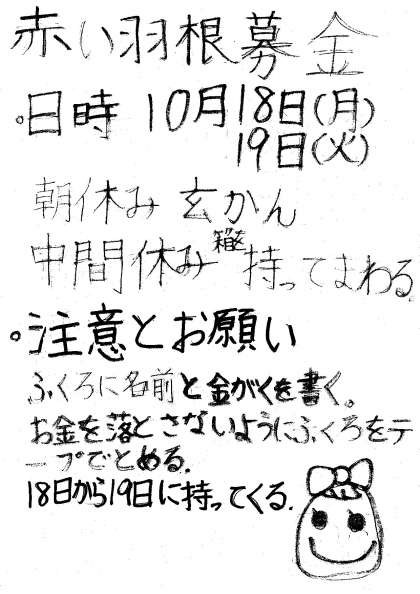 赤い羽根募金
。日時 10月18日(月)
19日(火)
朝休み 玄かん
中間休み 箱を 持ってまわる。
。注意とお願い
ふくろに名前と金がくを書く。
お金を落とさないようにふくろをテ
ープでとめる。
18日から19日に持ってくる。